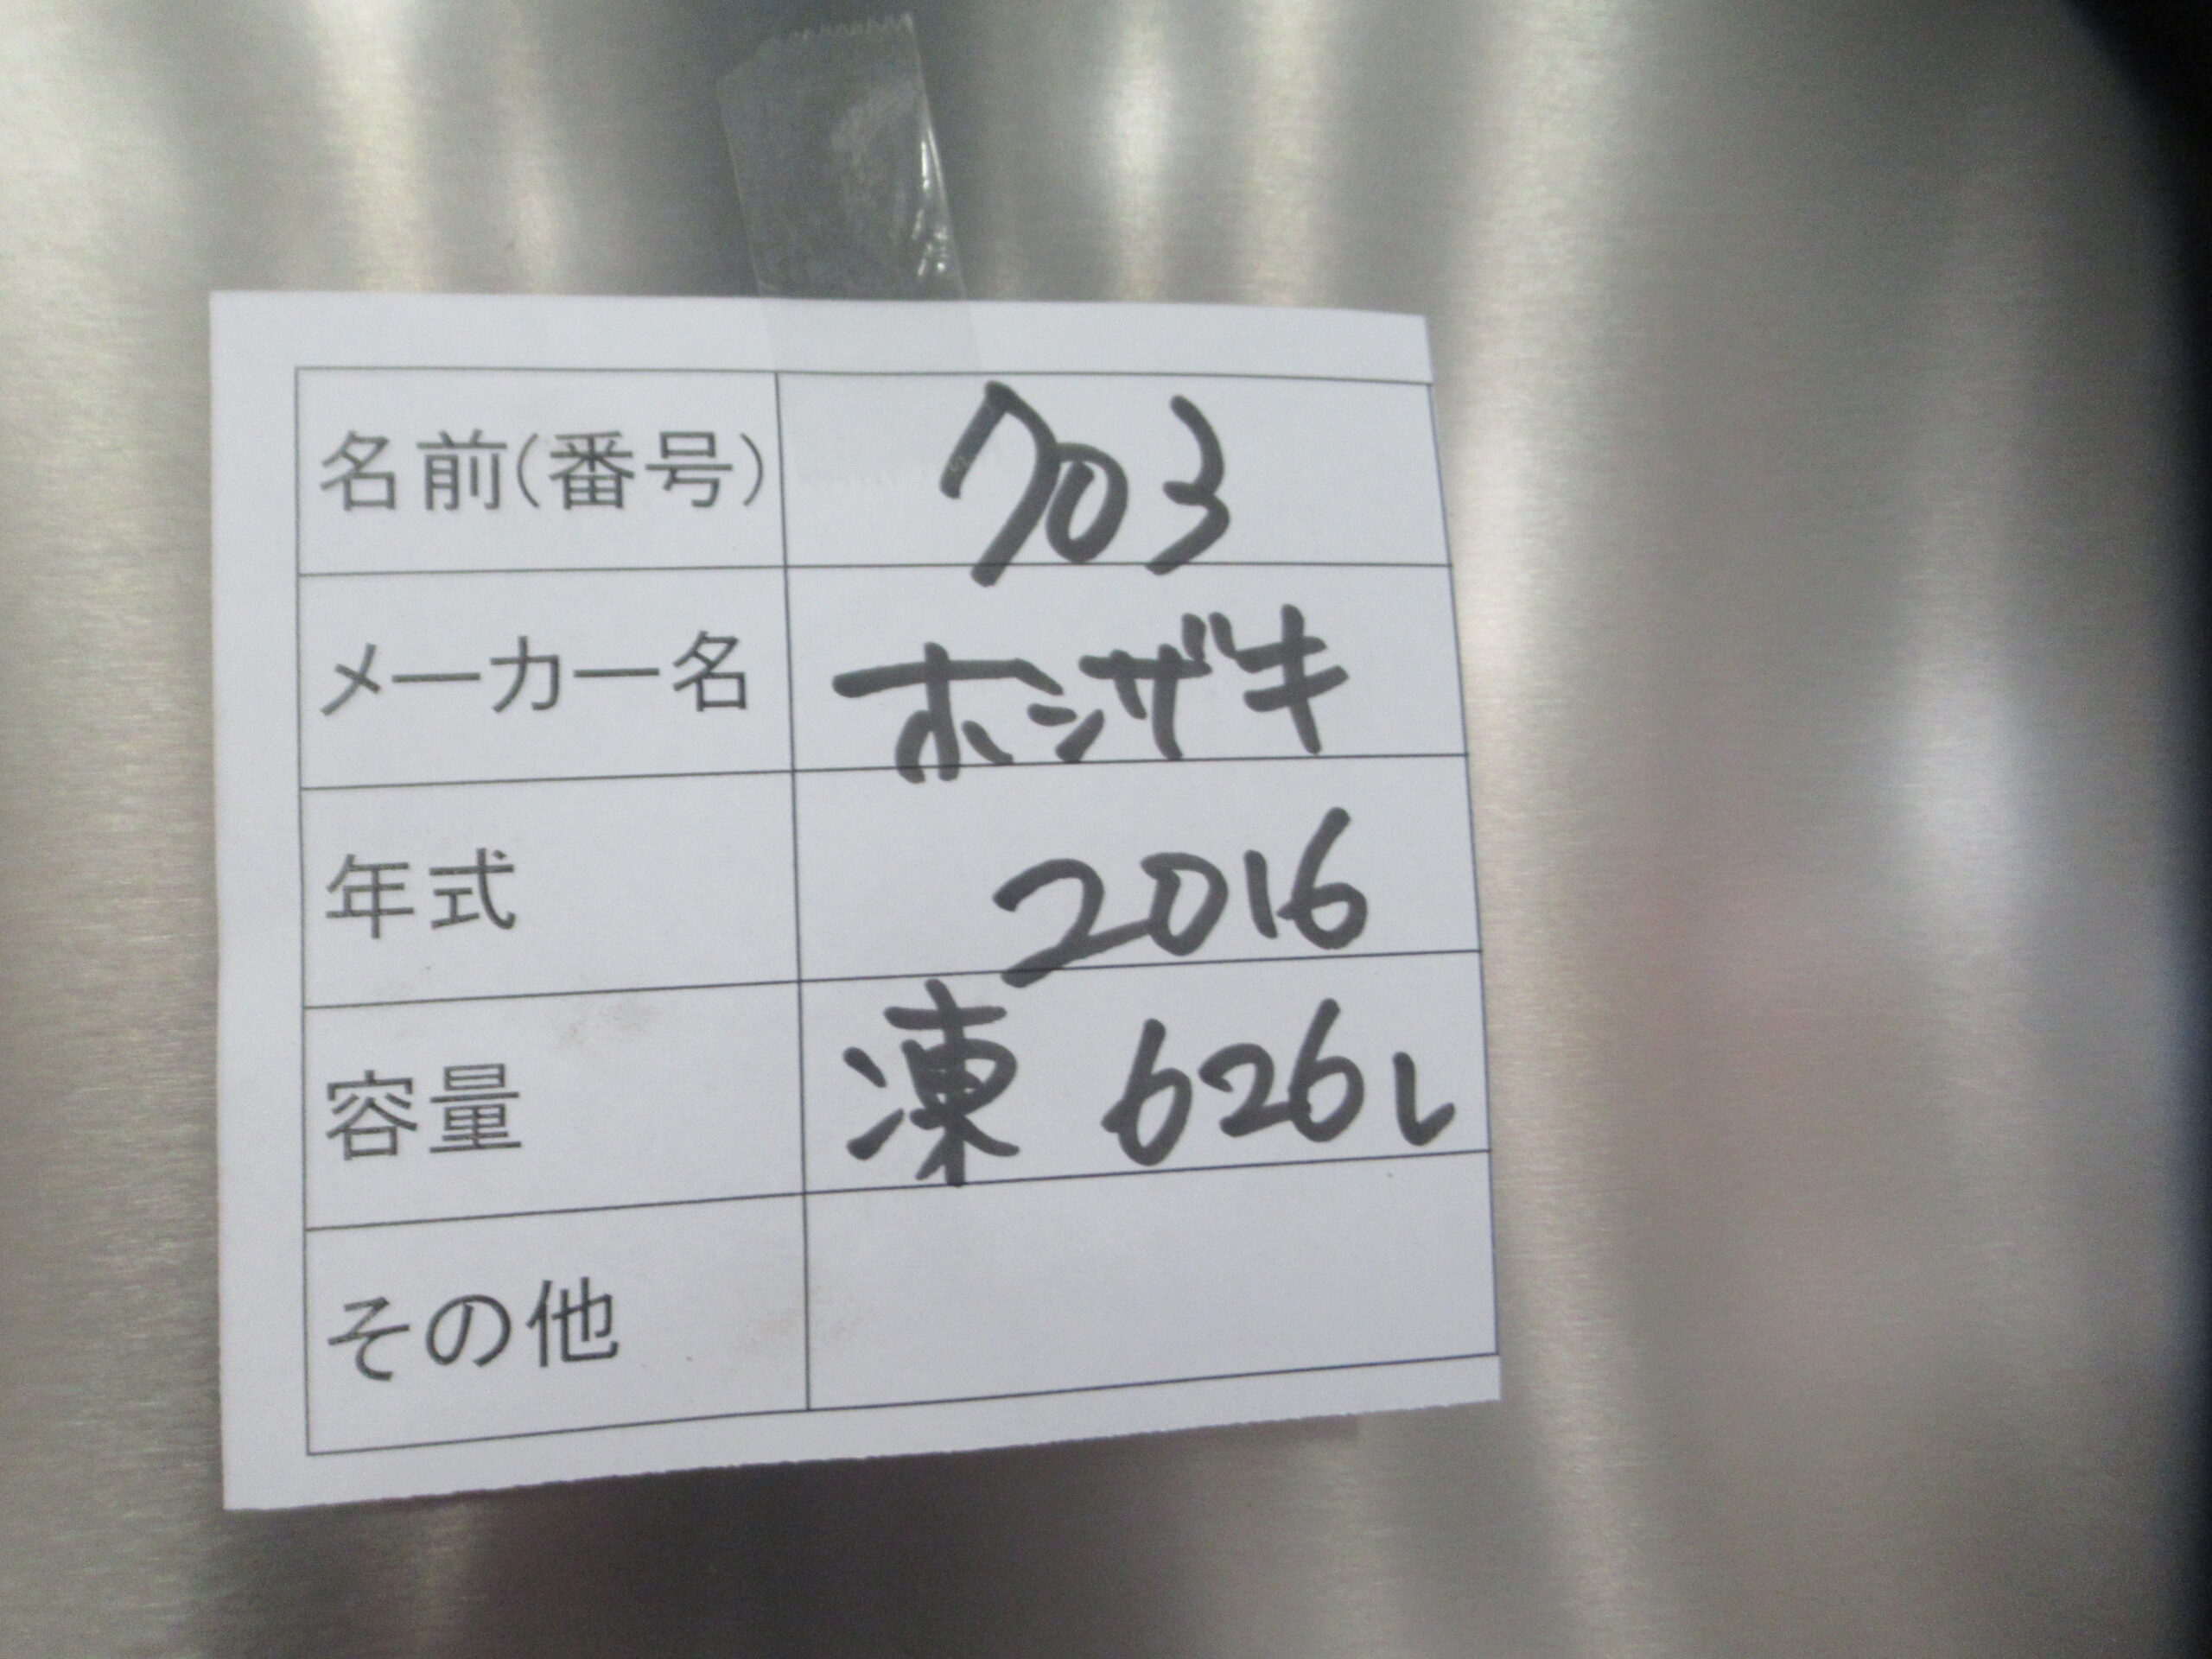 名前(番号) 703
メーカー名 ホシザキ
年式 2016
容量 凍 626L
その他